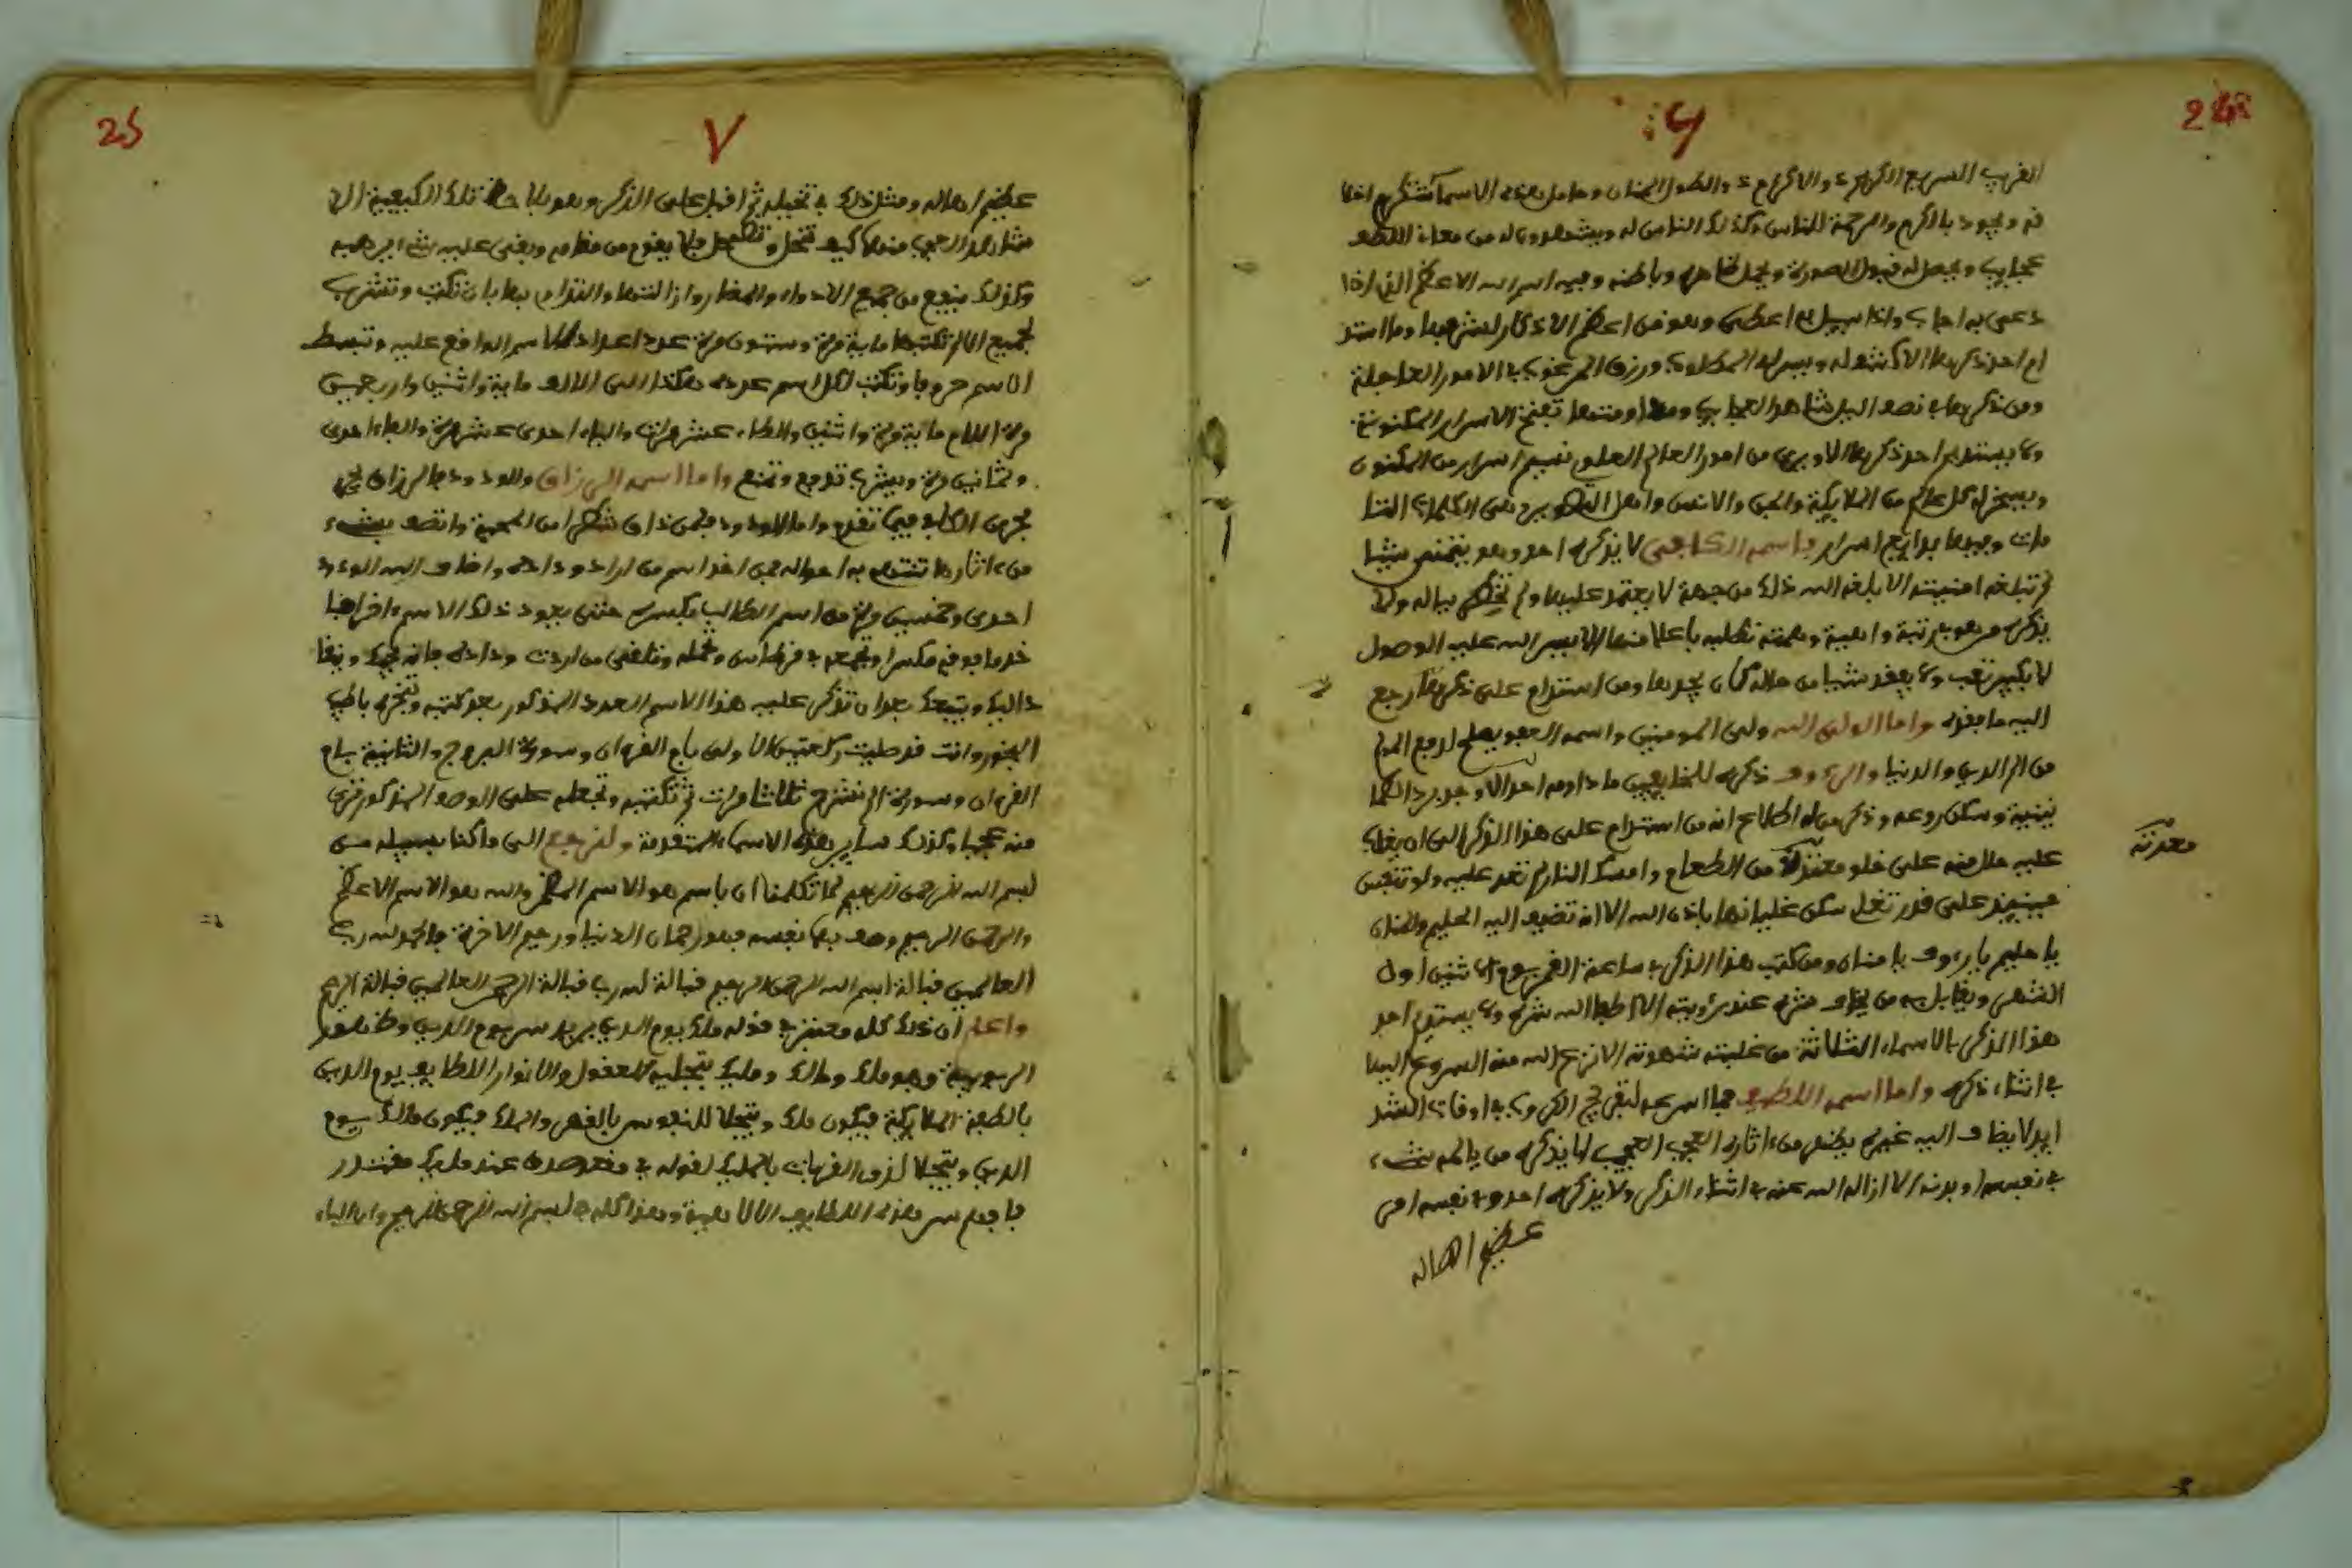 24
6
القريب السريع الكريم ذو الاكرام ذو الطول المنان وحامل هذه الاسما تشكرم اخلا
قه ويجود بالكرم والرحمة للناس وكذلك الناس له ويشهدون له من معاني اللطف
عجايب ويجعل له قبول الصورة ويجمل ظاهره وباطنه وفيه اسم الله الاعظم الذي اذا
دعي به اجاب واذا سيل به اعطى وهو من اعظم الاذكار لشرفها وما استد
ام احد ذكرها الا كشف له ويسر له المطلوب ورزق المرغوب في الامور العاجلة
ومن ذكرها في نصف اليل شاهد العجايب ومداومتها تفتح الاسرار المكنونة
ولا يستديم احد ذكرها الا ويرى من امور العالم العلوي نسيم اسرار من المكنون
ويسخر له كل عالم من الملايكة والجن والانس وهي الكلمات التا
مات وفيها بدايع اسرار واسمه الكافي لا يذكره احد وهو يتمنى شيا
لم تبلغه امنيته الا بلغه الله ذلك من جهة لا يعتمد عليها ولم تخطر بباله ولا
يذكره من هو في رتبة واهية وهمته تطلبه باعلا منها الا يسر الله عليه الوصول
لا بكبير تعب ولا يفقد شيا من حاله كان يجدها ومن استدام على ذكرها رجع
اليه ما فقده واما الولي الله ولي المومنين واسمه العفو يصلح لدفع المولم
من الم الدين والدنيا والرءوف ذكره للخايفين ما داومه احد الا وجد برد الطما
نينة وسكن روعه وذكر من له اطلاع انه من استدام على هذا الذكر الى ان يغلب
عليه حال منه على خلو معدته من الطعام وامسك النار لم تعد عليه ولو تنفس
حينيذ على قدر تغلي سكن غليانها باذن الله الا انه تضيف اليه الحليم والمنان
يا حليم يا رءوف يا منان ومن كتب هذا الذكر في ساعة القمر يوم الاثنين اول
الشهر ويقابل به من يخاف شره عند رؤيته الا اطفا الله شره ولا يستديم احد
هذا الذكر بالاسماء الثلاثة من غلبته شهوته الا نزع الله منه النزوع اليها
في اثناء ذكره واما اسمه اللطيف فما اسرعه لتفريج الكروب في اوقات الشد
ايد لا يضاف اليه غيره يظهر من ءاثاره العجب العجيب لا يذكره من يالمه شيء
في نفسه او بدنه الا ازاله الله عنه في اثناء الذكر ولا يذكره احد وفي نفسه امر
عظيم اهاله
معدته
25
٧
عظيم اهاله ومثل ذلك في تخيله ثم اقبل على الذكر وهو يلاحظ تلك الكيفية الا
شاهد العجب منها كيف تنحل وتضمحل فلا يقوم من مقامه وبقي عليه شيء يرهبه
وكذلك ينفع من جميع الادواء والمضار وازالتها والتداوي بها بان تكتب وتشرب
لجميع الالم تكتبها ماية مرة وستون مرة عدد اعداد الاسم الواقع عليه وتبسط
الاسم حروفا وتكتب لكل اسم عدده هكذا الى الالف ماية واثنين واربعين
مرة اللام ماية مرة واثنين والطاء عشر مرات والياء احدى عشر مرة والفاء احدى
وثمانين مرة ويشرب تدفع وتمنع واما اسمه الرزاق والودود فالرزاق
مجرى الكاف فيما تقدم واما الودود فلمن ذاق شكرا من المحبة واتصف بشيء
من ءاثارها تنتظم به احواله فمن اخذ اسم من اراد ودادته واضاف اليه الودود
احدى وخمسين مرة من اسم الطالب ويكسره حتى يعود ذلك الاسم افراضا
خد ما بوفه مكسرا وتجمعه في قرطاس وتحمله وتلقى من اردت وداده فانه يحبك وينقا
د اليك ويتبعك بعد ان تذكر عليه هذا الاسم العدد المذكور بعد كتبه وتبخره باطيب
البخور وانت قد صليت ركعتين الاولى بام القرءان وسورة البروج والثانية بام
القرءان وسورة الم نشرح ثلاثا مرات ثم تكتبه وتجعله على الوصف المذكور ترى
منه عجبا وكذلك ساير هذه الاسماء المتقدمة ولنرجع الى ما كنا بسبيله من
بسم الله الرحمن الرحيم لما تكلمنا ان باسم هو الاسم المضمر والله هو الاسم الاعظم
والرحمن الرحيم وصف بهما نفسه فهو رحمان الدنيا ورحيم الاخرة فالحمد لله رب
العالمين قبالة بسم الله الرحمن الرحيم قبالة لله رب قبالة الرحمن العالمين قبالة الرحيم
واعلم ان ذلك كله معتبر في قوله ملك يوم الدين يريد سر يوم الدين
الربوبية وهو ملك ومالك ومليك يتجليه للعقول والانوار اللطايف يوم الدين
بالطبع الملايكة فيكون ملك ويتجلا للنفوس بالقهر والملك فيكون مالك يوم
الدين ويتجلا لذوي القربات بالمليك لقوله في مقعد صدق عند مليك مقتدر
فافهم سر هذه اللطايف الالاهية وهذا كله في بسم الله الرحمن الرحيم واما الباء